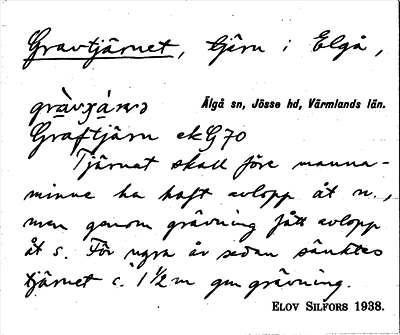 Gravtjärnet, tjärn i Elgå,
Älgå sn, Jösse hd, Värmlands län.
Graftjärn ek G 70
Tjärnet skall före manna-
minne ha haft avlopp åt n.,
men genom grävning fått avlopp
åt s. För några år sedan sänktes
tjärnet c. 1 1/2 m gm grävning.
ELOV SILFORS 1938.